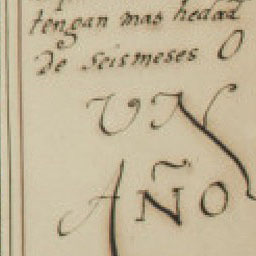 tengan mas hedad
de seismeses O
UN
AÑO